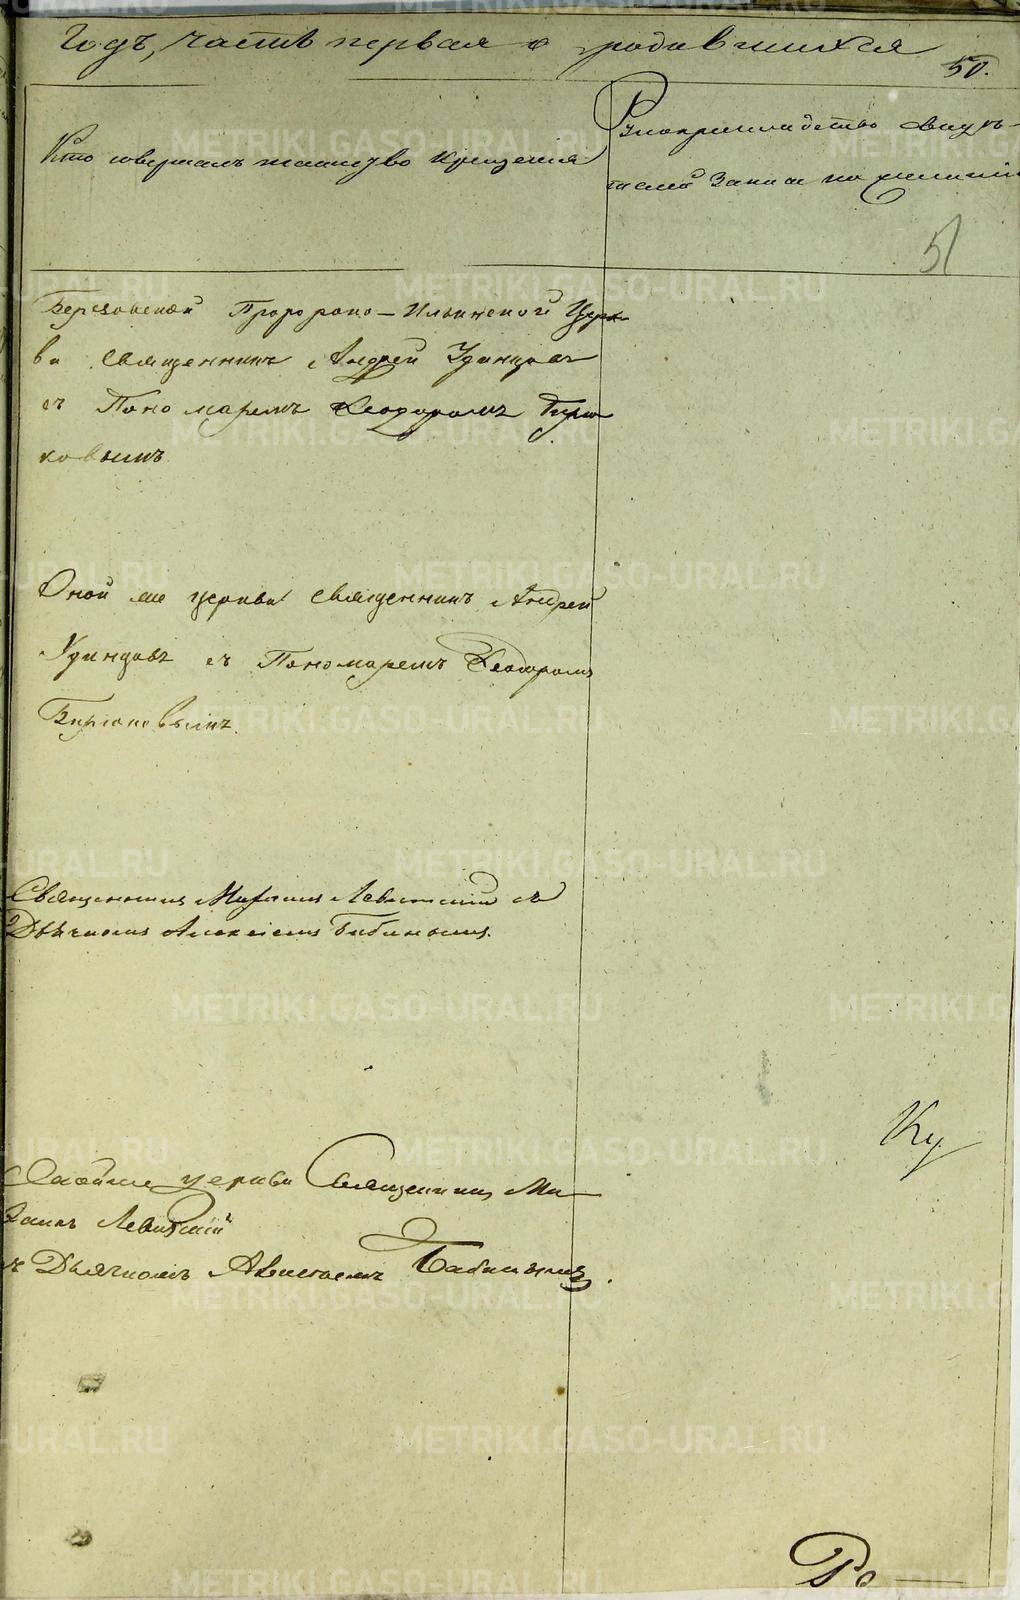 Годъ, часть первая о родившихся
50.
Кто совершалъ таинство крещенія
Рукоприкладство свидѣ-
телей записи по желанію
51
Березовской Пророко-Ильинской Церк
ви Священникъ Андрей Удинцовъ
съ Пономаремъ Феодоромъ Бирю
ковымъ
Оной же церкви священникъ Андрей
Удинцовъ съ Пономаремъ Феодоромъ
Бирюковымъ.
Священникъ Михаилъ Левитскій съ
Дьячкомъ Алексіемъ Бабинымъ.
церкви Священникъ Ми-
хаилъ Левитскій
съ Дьячкомъ Алексіемъ Бабинымъ.
Ку
Ро
METRIKI.GASO-URAL.RU